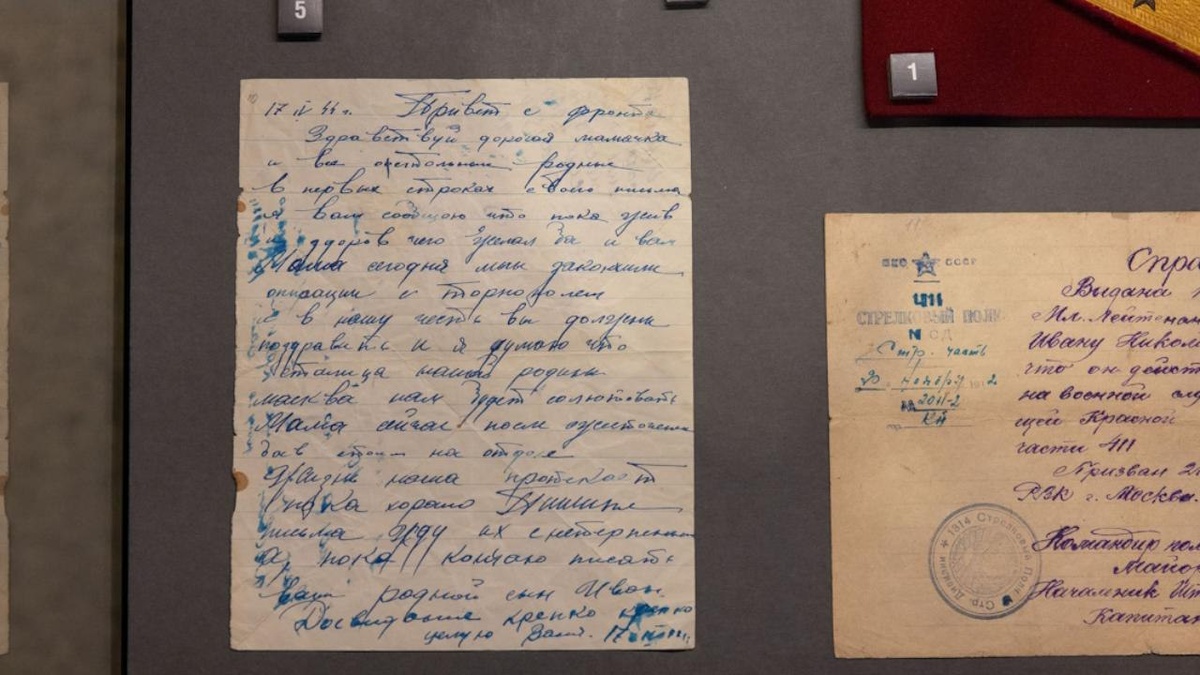 5
1
17 IV 44 г. Привет с фронта
Здравствуй дорогая мамачка
и вы остольнии родные
В первых строках своего письма
я вам сообщаю что пока жив
и здоров чего желал бы и вам
Мама сегодня мы закончили
операции с торнополем
и в нашу честь вы должны
поздравить и я думаю что
сталица нашей родины
масква нам будет солютовать
Мама сичас после
боев стоим на отдохе
Жизнь наша протекает
пока хорашо Пишите
письма жду их с нетерпением
пока кончаю писать
ваш родной сын Иван.
Досвидание крепко крепко
целую Вам. 17
СССР
411
СТРЕЛКОВЫЙ ПОЛК
СД
Стр. часть
20
2011-2
1314 Стрелковый Полк Стр. Дивизии
Спра
Выдана
Мл. Лейтенан
Ивану Никол
что он дейст
на военной слу
щей Красной
части 411
Призван 2
РВК г. Москвы.
Командир пол
Майор
Начальник Шт
Капитан